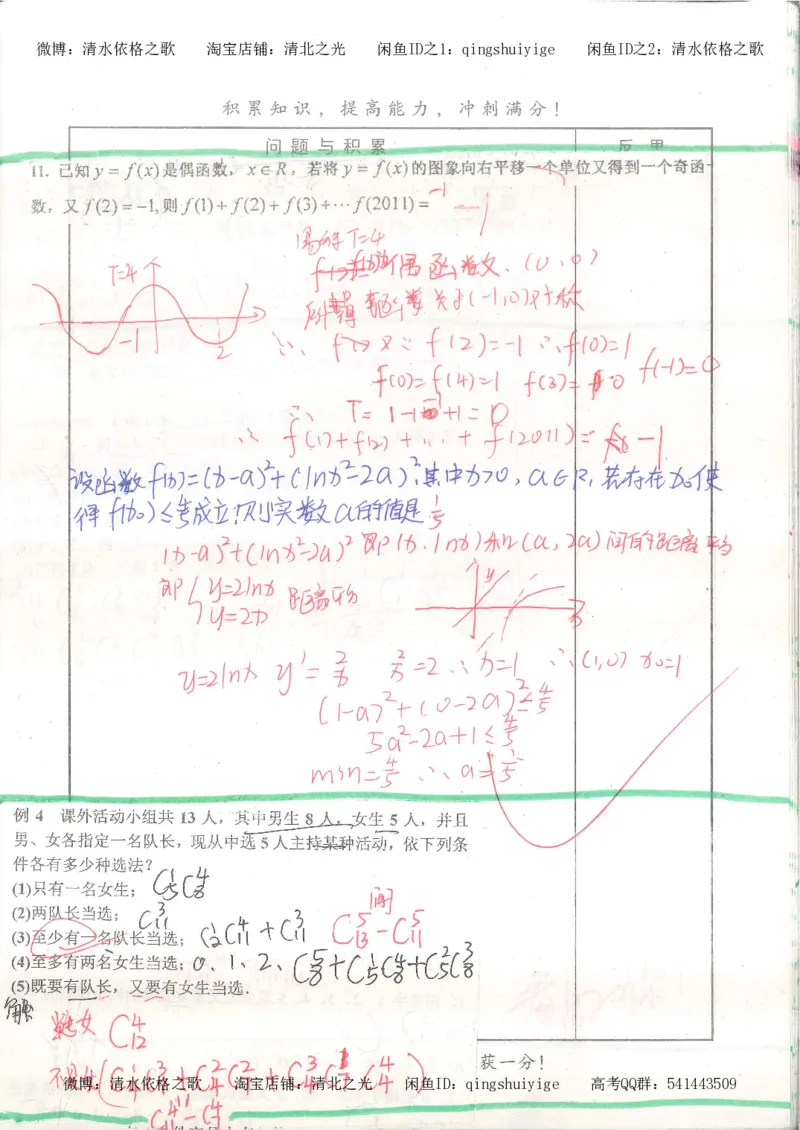 微博：清水依格之歌 淘宝店铺：清北之光 闲鱼ID之1：qingshuiyige 闲鱼ID之2：清水依格之歌
积累知识，提高能力，冲刺满分！
问题与积累 反思
11. 已知 y = f(x) 是偶函数，x∈R，若将 y = f(x) 的图象向右平移一个单位又得到一个奇函
数，又 f(2) = -1, 则 f(1) + f(2) + f(3) + … f(2011) = -1
-1
T=4
T=4
偶函数. (0,0)
关于(-1,0)对称
-1
2
∵ f(2)=-1 ∴f(0)=1
f(0)=f(4)=1 f(3)=0 f(-1)=0
∴ T= 1-1+0+1=0
∴ f(1)+f(2)+…+f(2011)= -1
设函数f(x)=(x-a)²+(lnx²-2a)²,其中x>0, a∈R, 若存在x₀使
得f(x₀)≤4/5成立,则实数a的值是 1/5
(x-a)²+(lnx²-2a)² 即(x, lnx)和(a, 2a)间的距离平
即{ y=2lnx 距离
y=2x
y
x
y=2lnx y'=2/x 2/x=2 ∴x=1 ∴(1,0) x₀=1
(1-a)²+(0-2a)²≤4/5
5a²-2a+1≤4/5
min=4/5 ∴a=1/5
例 4 课外活动小组共 13 人，其中男生 8 人，女生 5 人，并且
男、女各指定一名队长，现从中选 5 人主持某种活动，依下列条
件各有多少种选法？
(1)只有一名女生； C₅¹C₈⁴
(2)两队长当选； C₁₁³
(3)至少有一名队长当选； C₂¹C₁₁⁴+C₁₁³ 间 C₁₃⁵-C₁₁⁵
(4)至多有两名女生当选； 0、1、2. C₈⁵+C₅¹C₈⁴+C₅²C₈³
(5)既要有队长，又要有女生当选．
解
女 C₁₂⁴
(C₄¹C₇³+C₄²C₇²+C₄³C₇¹+C₄⁴)
获一分！
微博：清水依格之歌 淘宝店铺：清北之光 闲鱼ID：qingshuiyige 高考QQ群：541443509
C₁₁⁴-C₇⁴